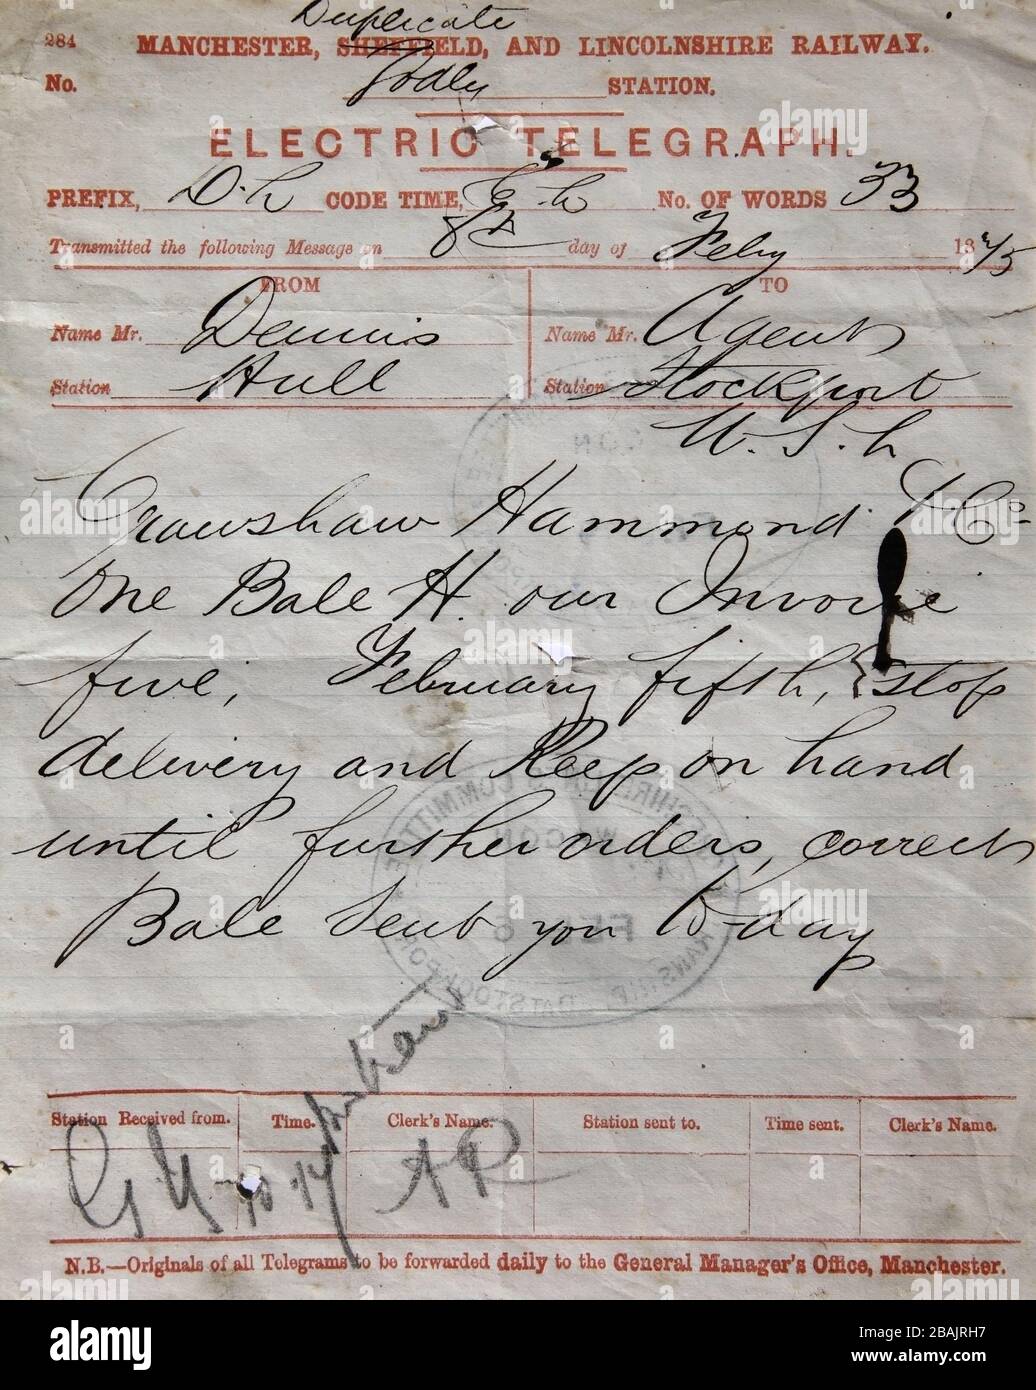 Duplicate
284
MANCHESTER, SHEFFIELD, AND LINCOLNSHIRE RAILWAY.
No. Godley STATION.
ELECTRIC TELEGRAPH.
PREFIX, D.h CODE TIME, E.h No. OF WORDS 33
Transmitted the following Message on 8th day of Feby 1875
FROM TO
Name Mr. Dennis Name Mr. Agent
Station Hull Station Stockport
Crawshaw Hammond & Co
One Bale H. our Invoice
five, February fifth, stop
delivery and Keep on hand
until further orders, correct
Bale Sent you to-day
Station Received from. Time. Clerk's Name. Station sent to. Time sent. Clerk's Name.
G.Y 10.17 AR
N.B.—Originals of all Telegrams to be forwarded daily to the General Manager's Office, Manchester.
alamy
Image ID: 2BAJRH7
www.alamy.com